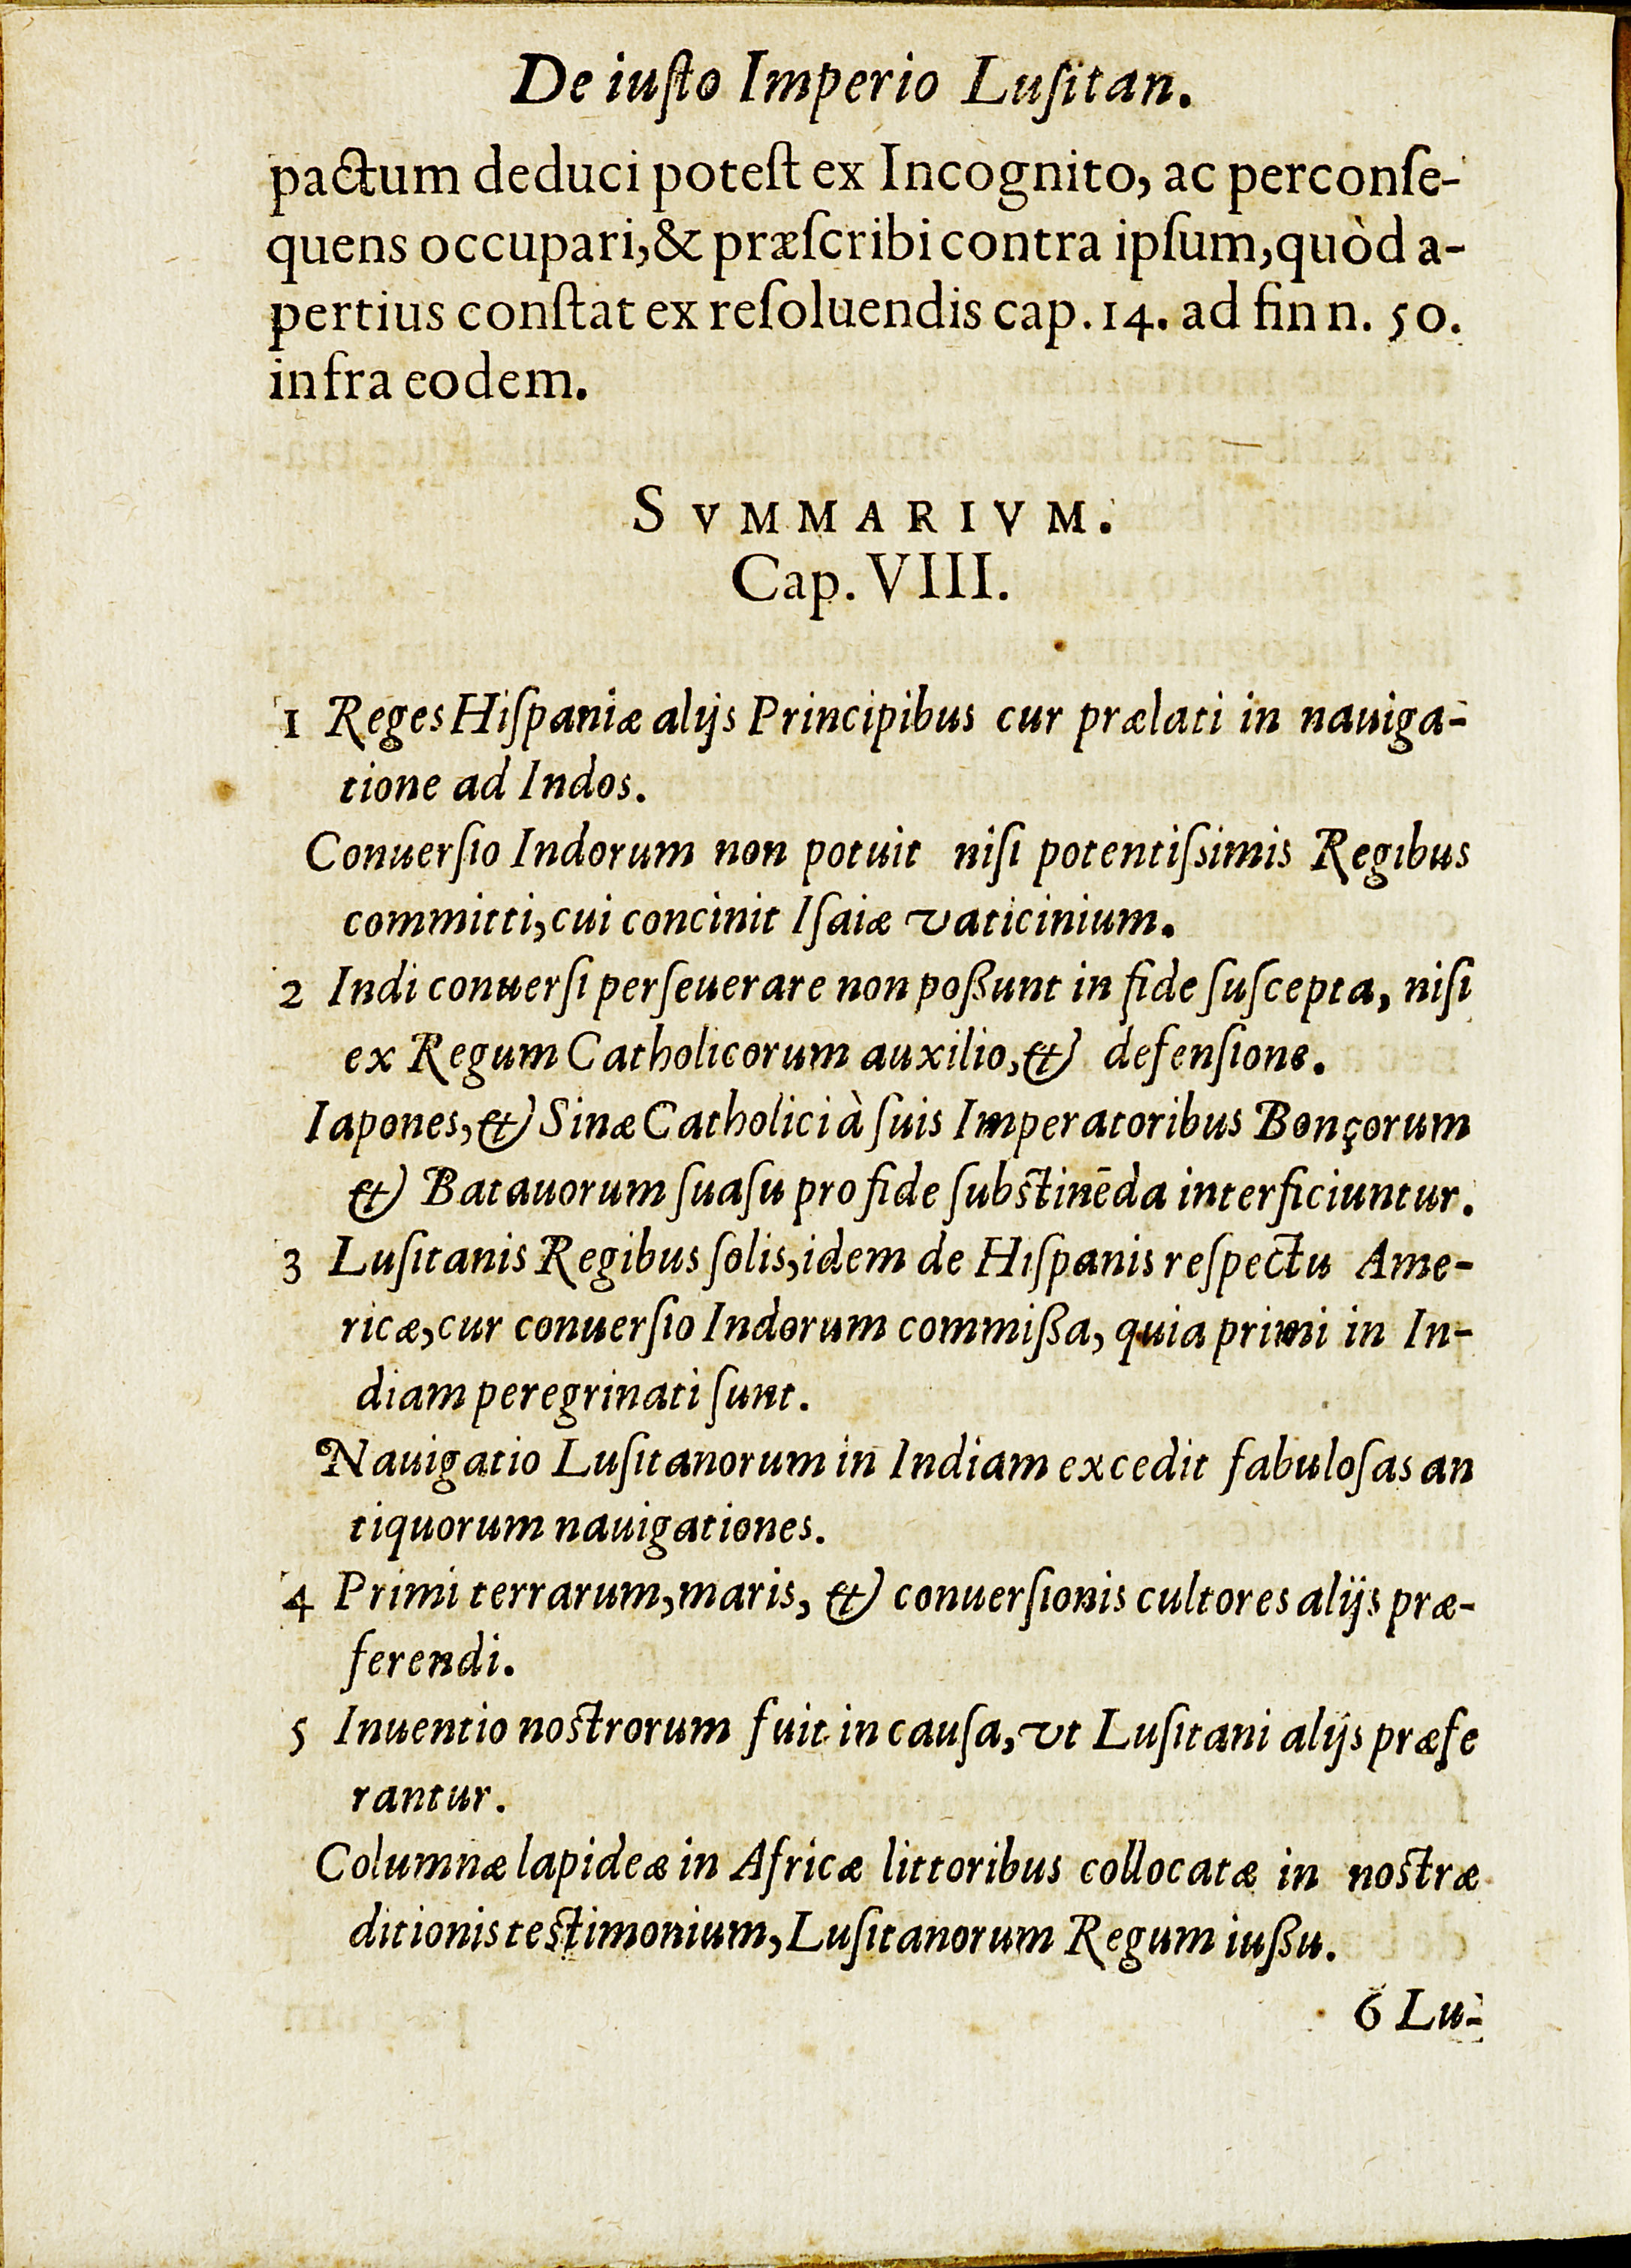 De iuſto Imperio Luſitan.
pactum deduci poteſt ex Incognito, ac perconſe-
quens occupari, & præſcribi contra ipſum, quòd a-
pertius conſtat ex reſoluendis cap. 14. ad fin n. 50.
infra eodem.
SVMMARIVM.
Cap. VIII.
1 Reges Hiſpaniæ alijs Principibus cur prælati in nauiga-
tione ad Indos.
Conuerſio Indorum non potuit niſi potentiſsimis Regibus
committi, cui concinit Iſaiæ vaticinium.
2 Indi conuerſi perſeuerare non poßunt in fide ſuſcepta, niſi
ex Regum Catholicorum auxilio, & defenſione.
Iapones, & Sinæ Catholici à ſuis Imperatoribus Bonçorum
& Batauorum ſuaſu pro fide ſubſtinēda interficiuntur.
3 Luſitanis Regibus ſolis, idem de Hiſpanis reſpectu Ame-
ricæ, cur conuerſio Indorum commißa, quia primi in In-
diam peregrinati ſunt.
Nauigatio Luſitanorum in Indiam excedit fabuloſas an
tiquorum nauigationes.
4 Primi terrarum, maris, & conuerſionis cultores alijs præ-
ferendi.
5 Inuentio noſtrorum fuit in cauſa, vt Luſitani alijs præfe
rantur.
Columnæ lapideæ in Africæ littoribus collocatæ in noſtræ
ditionis teſtimonium, Luſitanorum Regum iußu.
6 Lu-